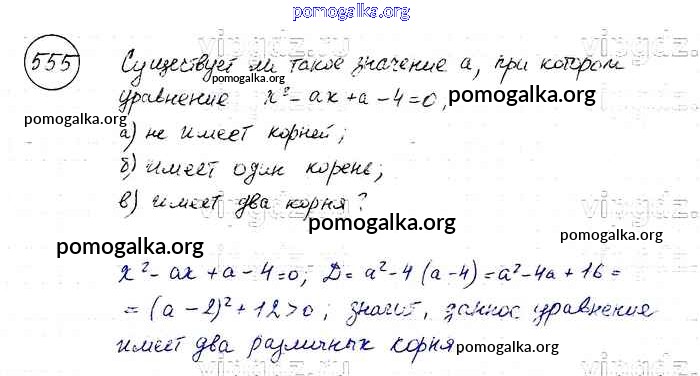 pomogalka.org
555 Существует ли такое значение а, при котором
pomogalka.org
уравнение x² - ax + a - 4 = 0,
pomogalka.org
pomogalka.org
а) не имеет корней;
б) имеет один корень;
в) имеет два корня?
vipgdz.
pomogalka.org
pomogalka.org
x² - ax + a - 4 = 0; D = a² - 4(a - 4) = a² - 4a + 16 =
= (a - 2)² + 12 > 0; значит, данное уравнение
имеет два различных корня
pomogalka.org